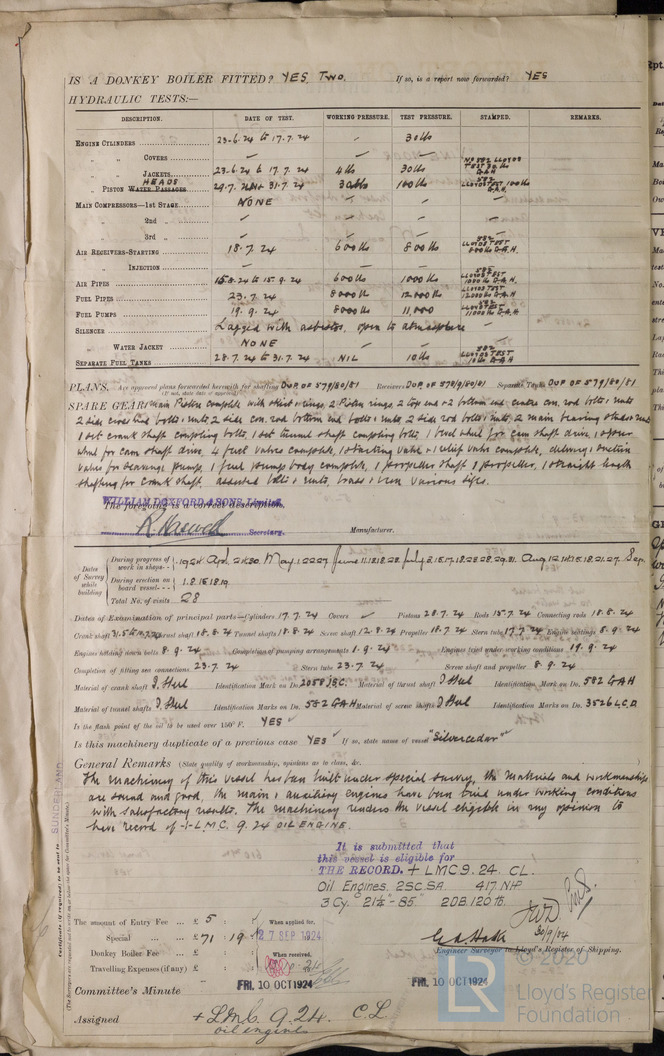 IS A DONKEY BOILER FITTED? YES. TWO. If so, is a report now forwarded? YES
HYDRAULIC TESTS:—
DESCRIPTION. DATE OF TEST. WORKING PRESSURE. TEST PRESSURE. STAMPED. REMARKS.
ENGINE CYLINDERS 23-6-24 to 17.7.24 30 lbs
" " COVERS
" " JACKETS 23-6-24 to 17.7.24 4 lbs 30 lbs No 582 LLOYDS TEST 30 lbs G.A.H
" PISTON WATER PASSAGES HEADS 29.7. 31.7.24 30 lbs 100 lbs 582 LLOYDS TEST 100 lbs G.A.H.
MAIN COMPRESSORS—1st STAGE NONE
" " 2nd "
" " 3rd "
AIR RECEIVERS—STARTING 18.7.24 600 lbs 800 lbs 582 LLOYDS TEST G.A.H.
" INJECTION
AIR PIPES 15.8.24 to 15.9.24 600 lbs 1000 lbs 582 LLOYDS TEST 1000 lbs G.A.H.
FUEL PIPES 23.7.24 8000 lbs 12000 lbs LLOYDS TEST 12000 lbs G.A.H
FUEL PUMPS 19.9.24 8000 lbs 11,000 LLOYDS TEST 11000 lbs G.A.H
SILENCER Lagged with asbestos, open to atmosphere
" WATER JACKET NONE
SEPARATE FUEL TANKS 28.7.24 to 31.7.24 NIL 10 lbs 582 LLOYDS TEST 10 lbs G.A.H
PLANS. Are approved plans forwarded herewith for shafting DUP OF 579/80/81 Receivers DUP OF 579/80/81 Separate Tanks DUP OF 579/80/81
(If not, state date of approval)
SPARE GEAR 1 main Piston complete with skirt & rings, 2 Piston rings, 2 top end & 2 bottom end centre con. rod bolts & nuts
2 side cross head bolts & nuts 2 side con. rod bottom end bolts & nuts 2 side rod bolts & nuts, 2 main bearing studs & nuts
1 set crank shaft coupling bolts, 1 set tunnel shaft coupling bolts, 1 bevel wheel for cam shaft drive, 1 spur
wheel for cam shaft drive, 4 fuel valves complete, 1 starting valve & 1 relief valve complete, delivery & suction
valves for scavenge pump, 1 fuel pump body complete, 1 propeller shaft 1 propeller, 1 straight length
shafting for crank shaft, assorted bolts & nuts, brass & iron various sizes.
WILLIAM DOXFORD & SONS, Limited.
The foregoing is a correct description,
Secretary. Manufacturer.
Dates of Survey while building
During progress of work in shops - - 1924 Apl. 24.30. May. 1.22.27 June 11.12.18.28. July Aug 12.14.15.18.21.27. Sep.
During erection on board vessel - - - 1.8.15.18.19.
Total No. of visits 28
Dates of Examination of principal parts—Cylinders 17.7.24 Covers Pistons 28.7.24 Rods 15.7.24 Connecting rods 18.8.24
Crank shaft Thrust shaft 18.8.24 Tunnel shafts 18.8.24 Screw shaft 12.8.24 Propeller 18.7.24 Stern tube 17.7.24 Engine seatings 8.9.24
Engines holding down bolts 8.9.24 Completion of pumping arrangements 1.9.24 Engines tried under working conditions 19.9.24
Completion of fitting sea connections 23.7.24 Stern tube 23.7.24 Screw shaft and propeller 8.9.24
Material of crank shaft I Steel Identification Mark on Do. 2058 JBC. Material of thrust shaft I Steel Identification Mark on Do. 582 GAH
Material of tunnel shafts I Steel Identification Marks on Do. 582 GAH Material of screw shafts I Steel Identification Marks on Do. 3526 L.C.D.
Is the flash point of the oil to be used over 150° F. YES
Is this machinery duplicate of a previous case YES If so, state name of vessel "Silvercedar"
General Remarks (State quality of workmanship, opinions as to class, &c.)
The machinery of this vessel has been built under special survey, the materials and workmanship
are sound and good, the main & auxiliary engines have been tried under working conditions
with satisfactory results. The machinery renders the vessel eligible in my opinion to
have record of + L.M.C. 9.24 OIL ENGINE.
It is submitted that
this vessel is eligible for
THE RECORD. + LMC 9.24. CL.
Oil Engines. 2SC.SA. 417 NHP
3 Cy. 21¼"-85" 2DB 120 lb.
30/9/24
The amount of Entry Fee ... £ 5 : When applied for,
Special ... £ 71 : 19 27 SEP 1924
Donkey Boiler Fee ... £ When received,
Travelling Expenses (if any) £
Engineer Surveyor to Lloyd's Register of Shipping.
Committee's Minute FRI. 10 OCT 1924 FRI. 10 OCT 1924
Assigned + L.M.C. 9.24. C.L.
oil engine
SUNDERLAND
Certificate (if required) to be sent to
© 2020
LR
Lloyd's Register
Foundation